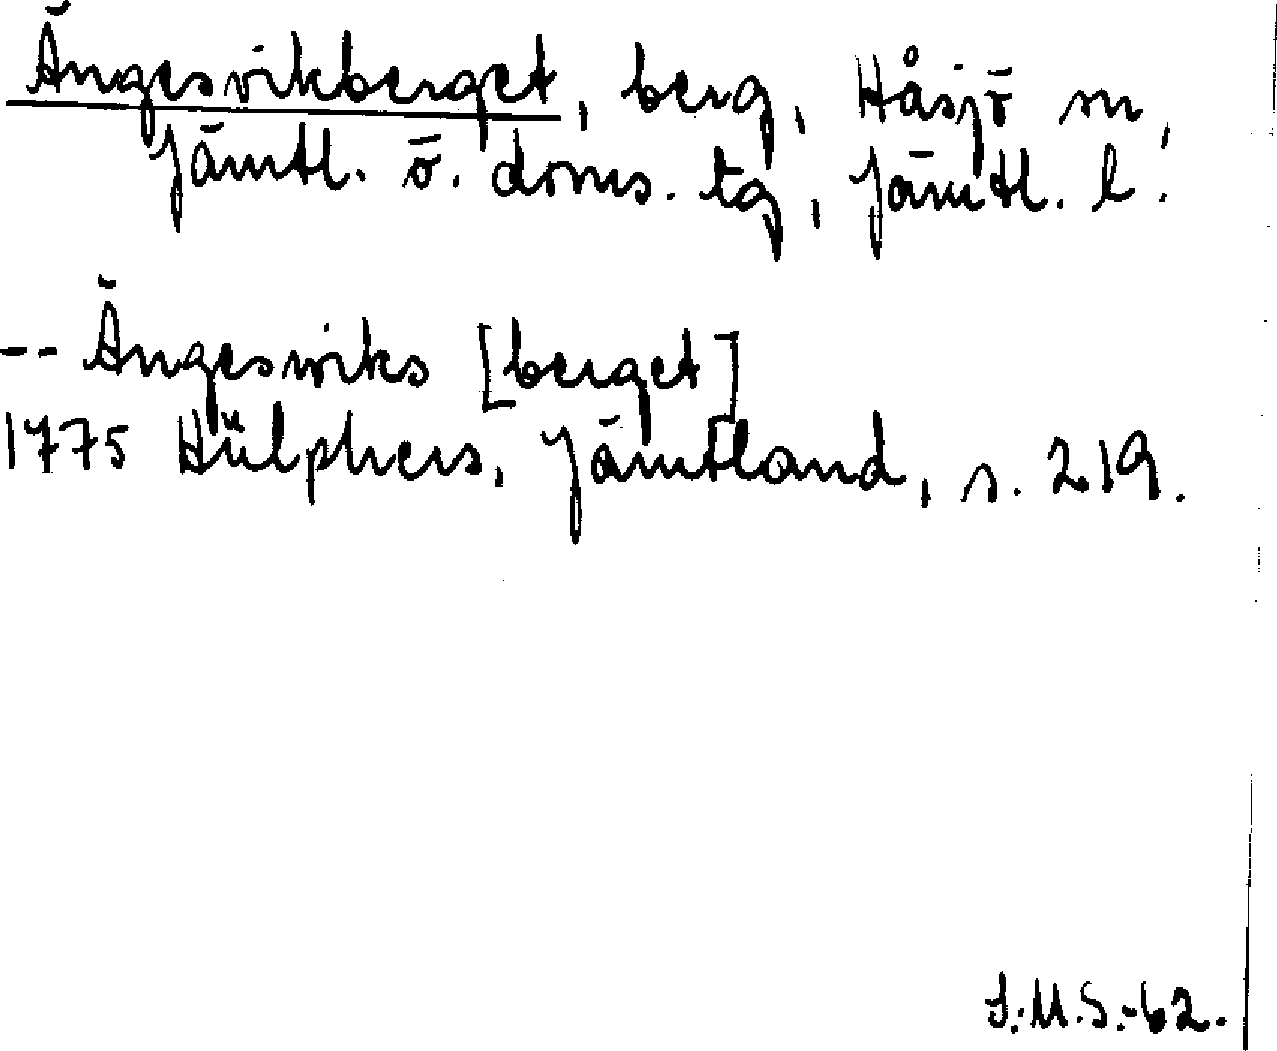 Ängesvikberget, berg, Håsjö sn,
Jämtl. ö. doms. tg, Jämtl. l.
-- Ängesviks [berget]
1775 Hülphers, Jämtland, s. 219.
I.M.S.-62.